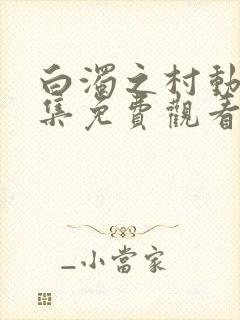 白濁之村動
集免費觀看
_小當家